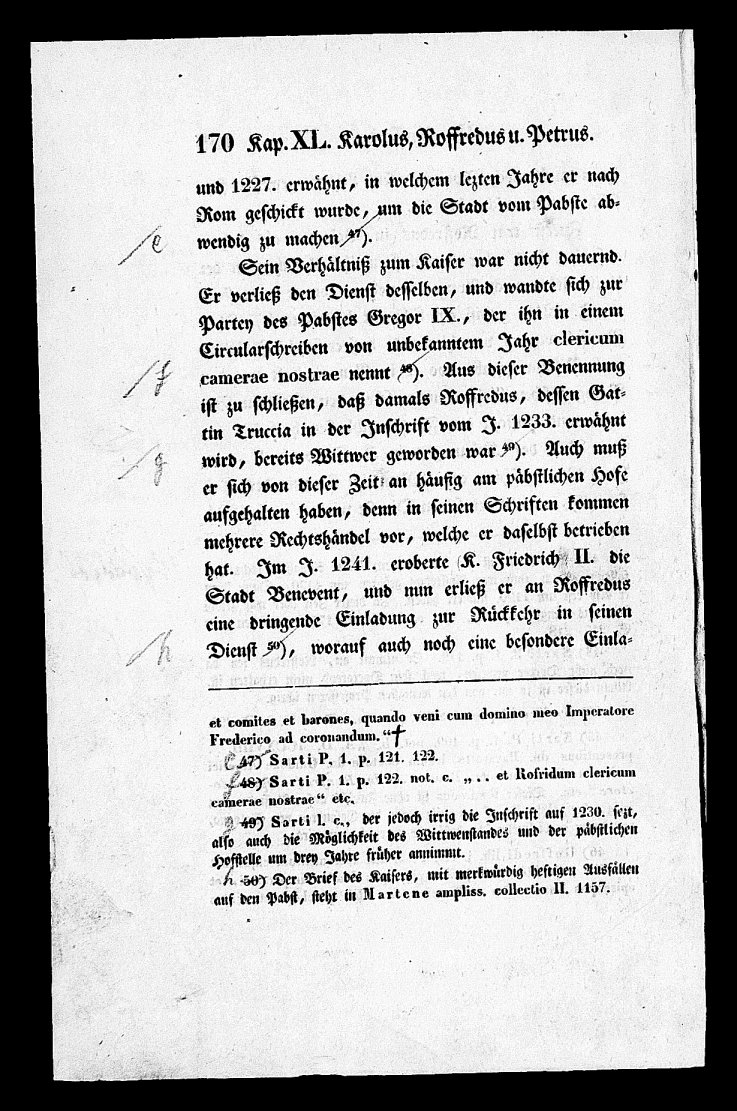 170 Kap. XL. Karolus, Roffredus u. Petrus.
und 1227. erwähnt, in welchem lezten Jahre er nach
Rom geschickt wurde, um die Stadt vom Pabste ab-
wendig zu machen 47).
/e
Sein Verhältniß zum Kaiser war nicht dauernd.
Er verließ den Dienst desselben, und wandte sich zur
Partey des Pabstes Gregor IX., der ihn in einem
Circularschreiben von unbekanntem Jahr clericum
camerae nostrae nennt 48). Aus dieser Benennung
/f
ist zu schließen, daß damals Roffredus, dessen Gat-
tin Truccia in der Inschrift vom J. 1233. erwähnt
wird, bereits Wittwer geworden war 49). Auch muß
/g
er sich von dieser Zeit an häufig am päbstlichen Hofe
aufgehalten haben, denn in seinen Schriften kommen
mehrere Rechtshändel vor, welche er daselbst betrieben
hat. Im J. 1241. eroberte K. Friedrich II. die
Stadt Benevent, und nun erließ er an Roffredus
eine dringende Einladung zur Rückkehr in seinen
Dienst 50), worauf auch noch eine besondere Einla-
/h
et comites et barones, quando veni cum domino meo Imperatore
Frederico ad coronandum.“ †
e 47) Sarti P. 1. p. 121. 122.
f 48) Sarti P. 1. p. 122. not. c. „ . . et Rofridum clericum
camerae nostrae“ etc.
g 49) Sarti l. c., der jedoch irrig die Inschrift auf 1230. sezt,
also auch die Möglichkeit des Wittwenstandes und der päbstlichen
Hofstelle um drey Jahre früher annimmt.
h 50) Der Brief des Kaisers, mit merkwürdig heftigen Ausfällen
auf den Pabst, steht in Martene ampliss. collectio II. 1157.